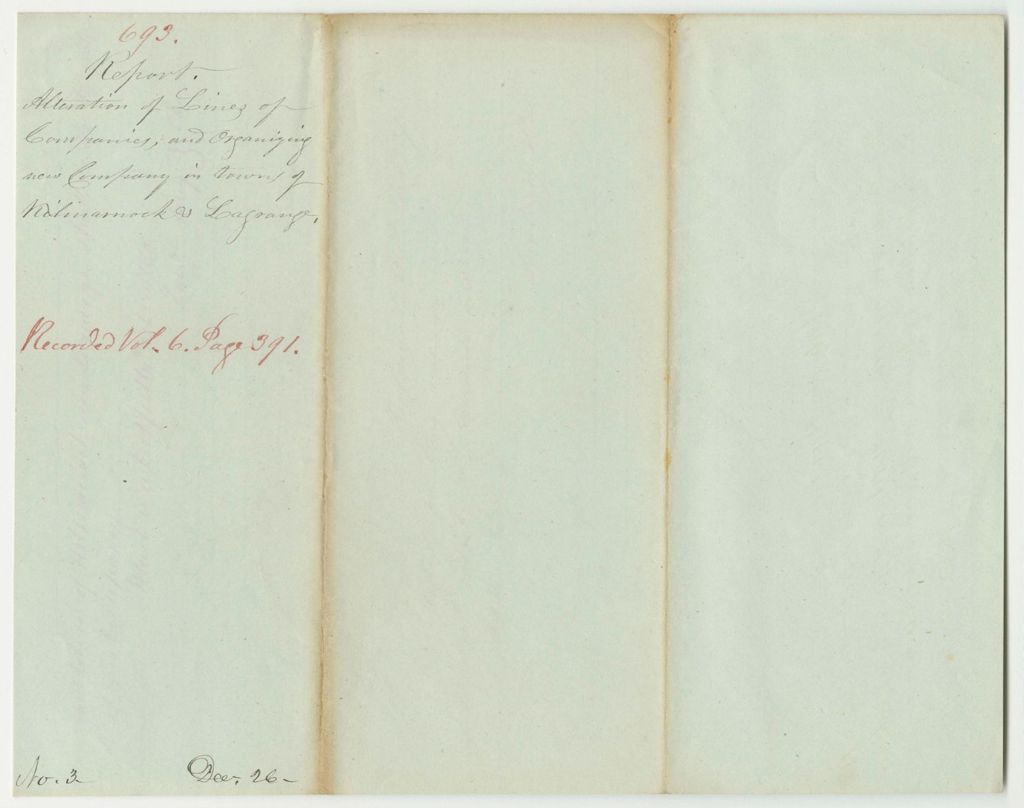 693.
Report.
Alteration of Lines of
Companies, and Organizing
new Company in towns of
Kilmarnock & Lagrange.
Recorded Vol. 6. Page 391.
No. 3
Dec. 26-